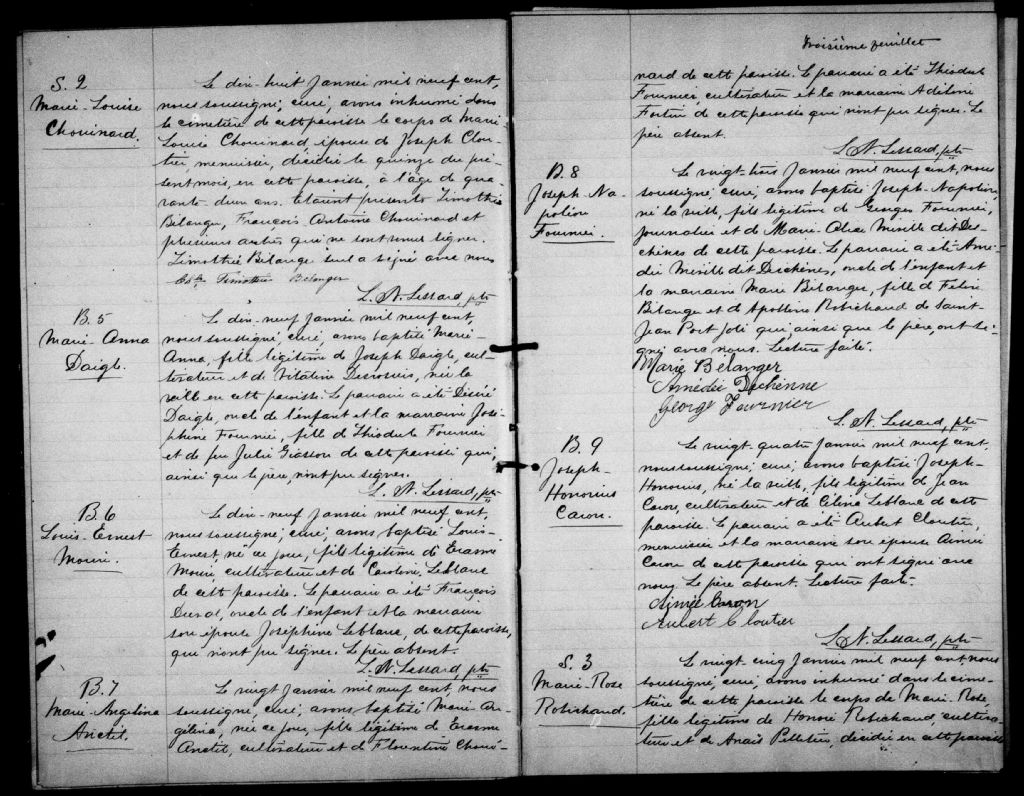 S. 2
Marie-Louise
Chouinard.
Le dix-huit Janvier mil neuf cent,
nous soussigné, curé, avons inhumé dans
le cimetière de cette paroisse le corps de Marie-
Louise Chouinard, épouse de Joseph Clou-
tier, menuisier, décédée le quinze du pré-
sent mois, en cette paroisse, à l'âge de qua-
rante-deux ans. Etaient présents Timothée
Bélanger, François, Antoine Chouinard et
plusieurs autres qui ne sont sus signer.
Timothée Bélanger seul a signé avec nous
Timothée Bélanger
L. N. Lessard, ptre
B. 5
Marie-Anna
Daigle.
Le dix-neuf Janvier mil neuf cent,
nous soussigné, curé, avons baptisé Marie-
Anna, fille légitime de Joseph Daigle, cul-
tivateur et de Vitaline Desrosiers, née la
veille en cette paroisse. Le parrain a été Désiré
Daigle, oncle de l'enfant et la marraine José-
phine Fournier, fille de Thiodule Fournier
et de feu Julie Giasson de cette paroisse qui,
ainsi que le père, n'ont pu signer.
L. N. Lessard, ptre
B. 6
Louis-Ernest
Morin.
Le dix-neuf Janvier mil neuf cent,
nous soussigné, curé, avons baptisé Louis-
Ernest, né ce jour, fils légitime d'Erasme
Morin, cultivateur et de Caroline Leblanc
de cette paroisse. Le parrain a été François
Duval, oncle de l'enfant et la marraine
son épouse Joséphine Leblanc, de cette paroisse,
qui n'ont pu signer. Le père absent.
L. N. Lessard, ptre
B. 7
Marie-Angélina
Anctil.
Le vingt Janvier mil neuf cent, nous
soussigné, curé, avons baptisé Marie-An-
gélina, née ce jour, fille légitime de Erasme
Anctil, cultivateur et de Florentine Choui-
Troisième feuillet
nard de cette paroisse. Le parrain a été Thiodule
Fournier, cultivateur et la marraine Adeline
Fortin de cette paroisse qui n'ont pu signer. Le
père absent.
L. N. Lessard, ptre
B. 8
Joseph-Na-
poléon
Fournier.
Le vingt-trois Janvier mil neuf cent, nous
soussigné, curé, avons baptisé Joseph-Napoléon,
né la veille, fils légitime de Georges Fournier,
journalier et de Marie-Alice Miville dit Des-
chênes de cette paroisse. Le parrain a été Amé-
dée Miville dit Deschênes, oncle de l'enfant et
la marraine Marie Bélanger, fille de Félix
Bélanger et de Apolline Robichaud de Saint-
Jean Port Joli qui, ainsi que le père, ont si-
gné avec nous. Lecture faite.
Marie Bélanger
Amédée Dechênne
George Fournier
L. N. Lessard, ptre
B. 9
Joseph-
Honorius
Caron.
Le vingt-quatre Janvier mil neuf cent,
nous soussigné, curé, avons baptisé Joseph-
Honorius, né la veille, fils légitime de Jean
Caron, cultivateur, et de Célina Leblanc de cette
paroisse. Le parrain a été Aubert Cloutier,
menuisier et la marraine son épouse Aimée
Caron de cette paroisse qui ont signé avec
nous. Le père absent. Lecture faite.
Aimée Caron
Aubert Cloutier
L. N. Lessard, ptre
S. 3
Marie-Rose
Robichaud.
Le vingt-cinq Janvier mil neuf cent, nous
soussigné, curé, avons inhumé dans le cime-
tière de cette paroisse le corps de Marie-Rose,
fille légitime de Honoré Robichaud, cultiva-
teur et de Anaïs Pelletier, décédée en cette paroisse